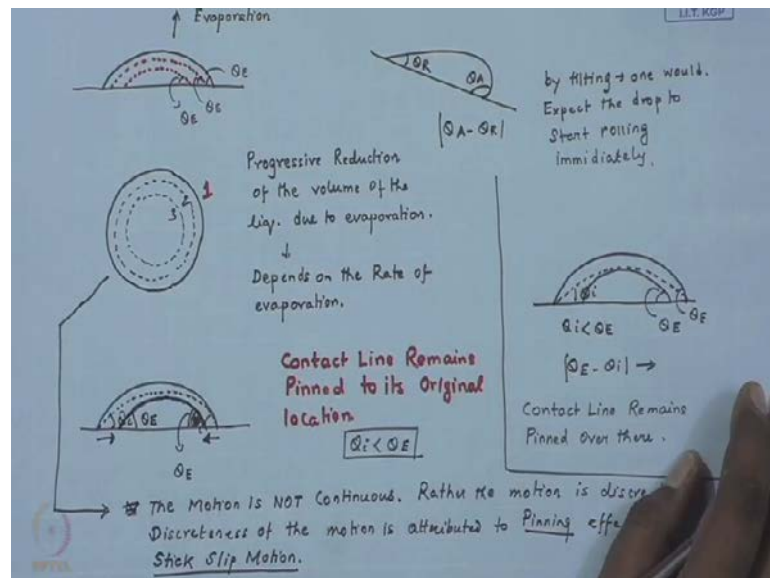 Evaporation
I.I.T. KGP
θe
θE
θE
θR
θA
|θA-θR|
by tilting → one would.
Expect the drop to
Start rolling
immidiately.
1
2
3
Progressive Reduction
of the volume of the
liq. due to evaporation.
↓
Depends on the Rate of
evaporation.
θi
θi<θE
θE
θE
|θE-θi| →
Contact Line Remains
Pinned over there.
Contact Line Remains
Pinned to its Original
location
θi<θE
θi
θE
θE
The Motion Is NOT Continuous. Rather the motion is
Discreteness of the motion is attributed to Pinning
Stick Slip Motion.